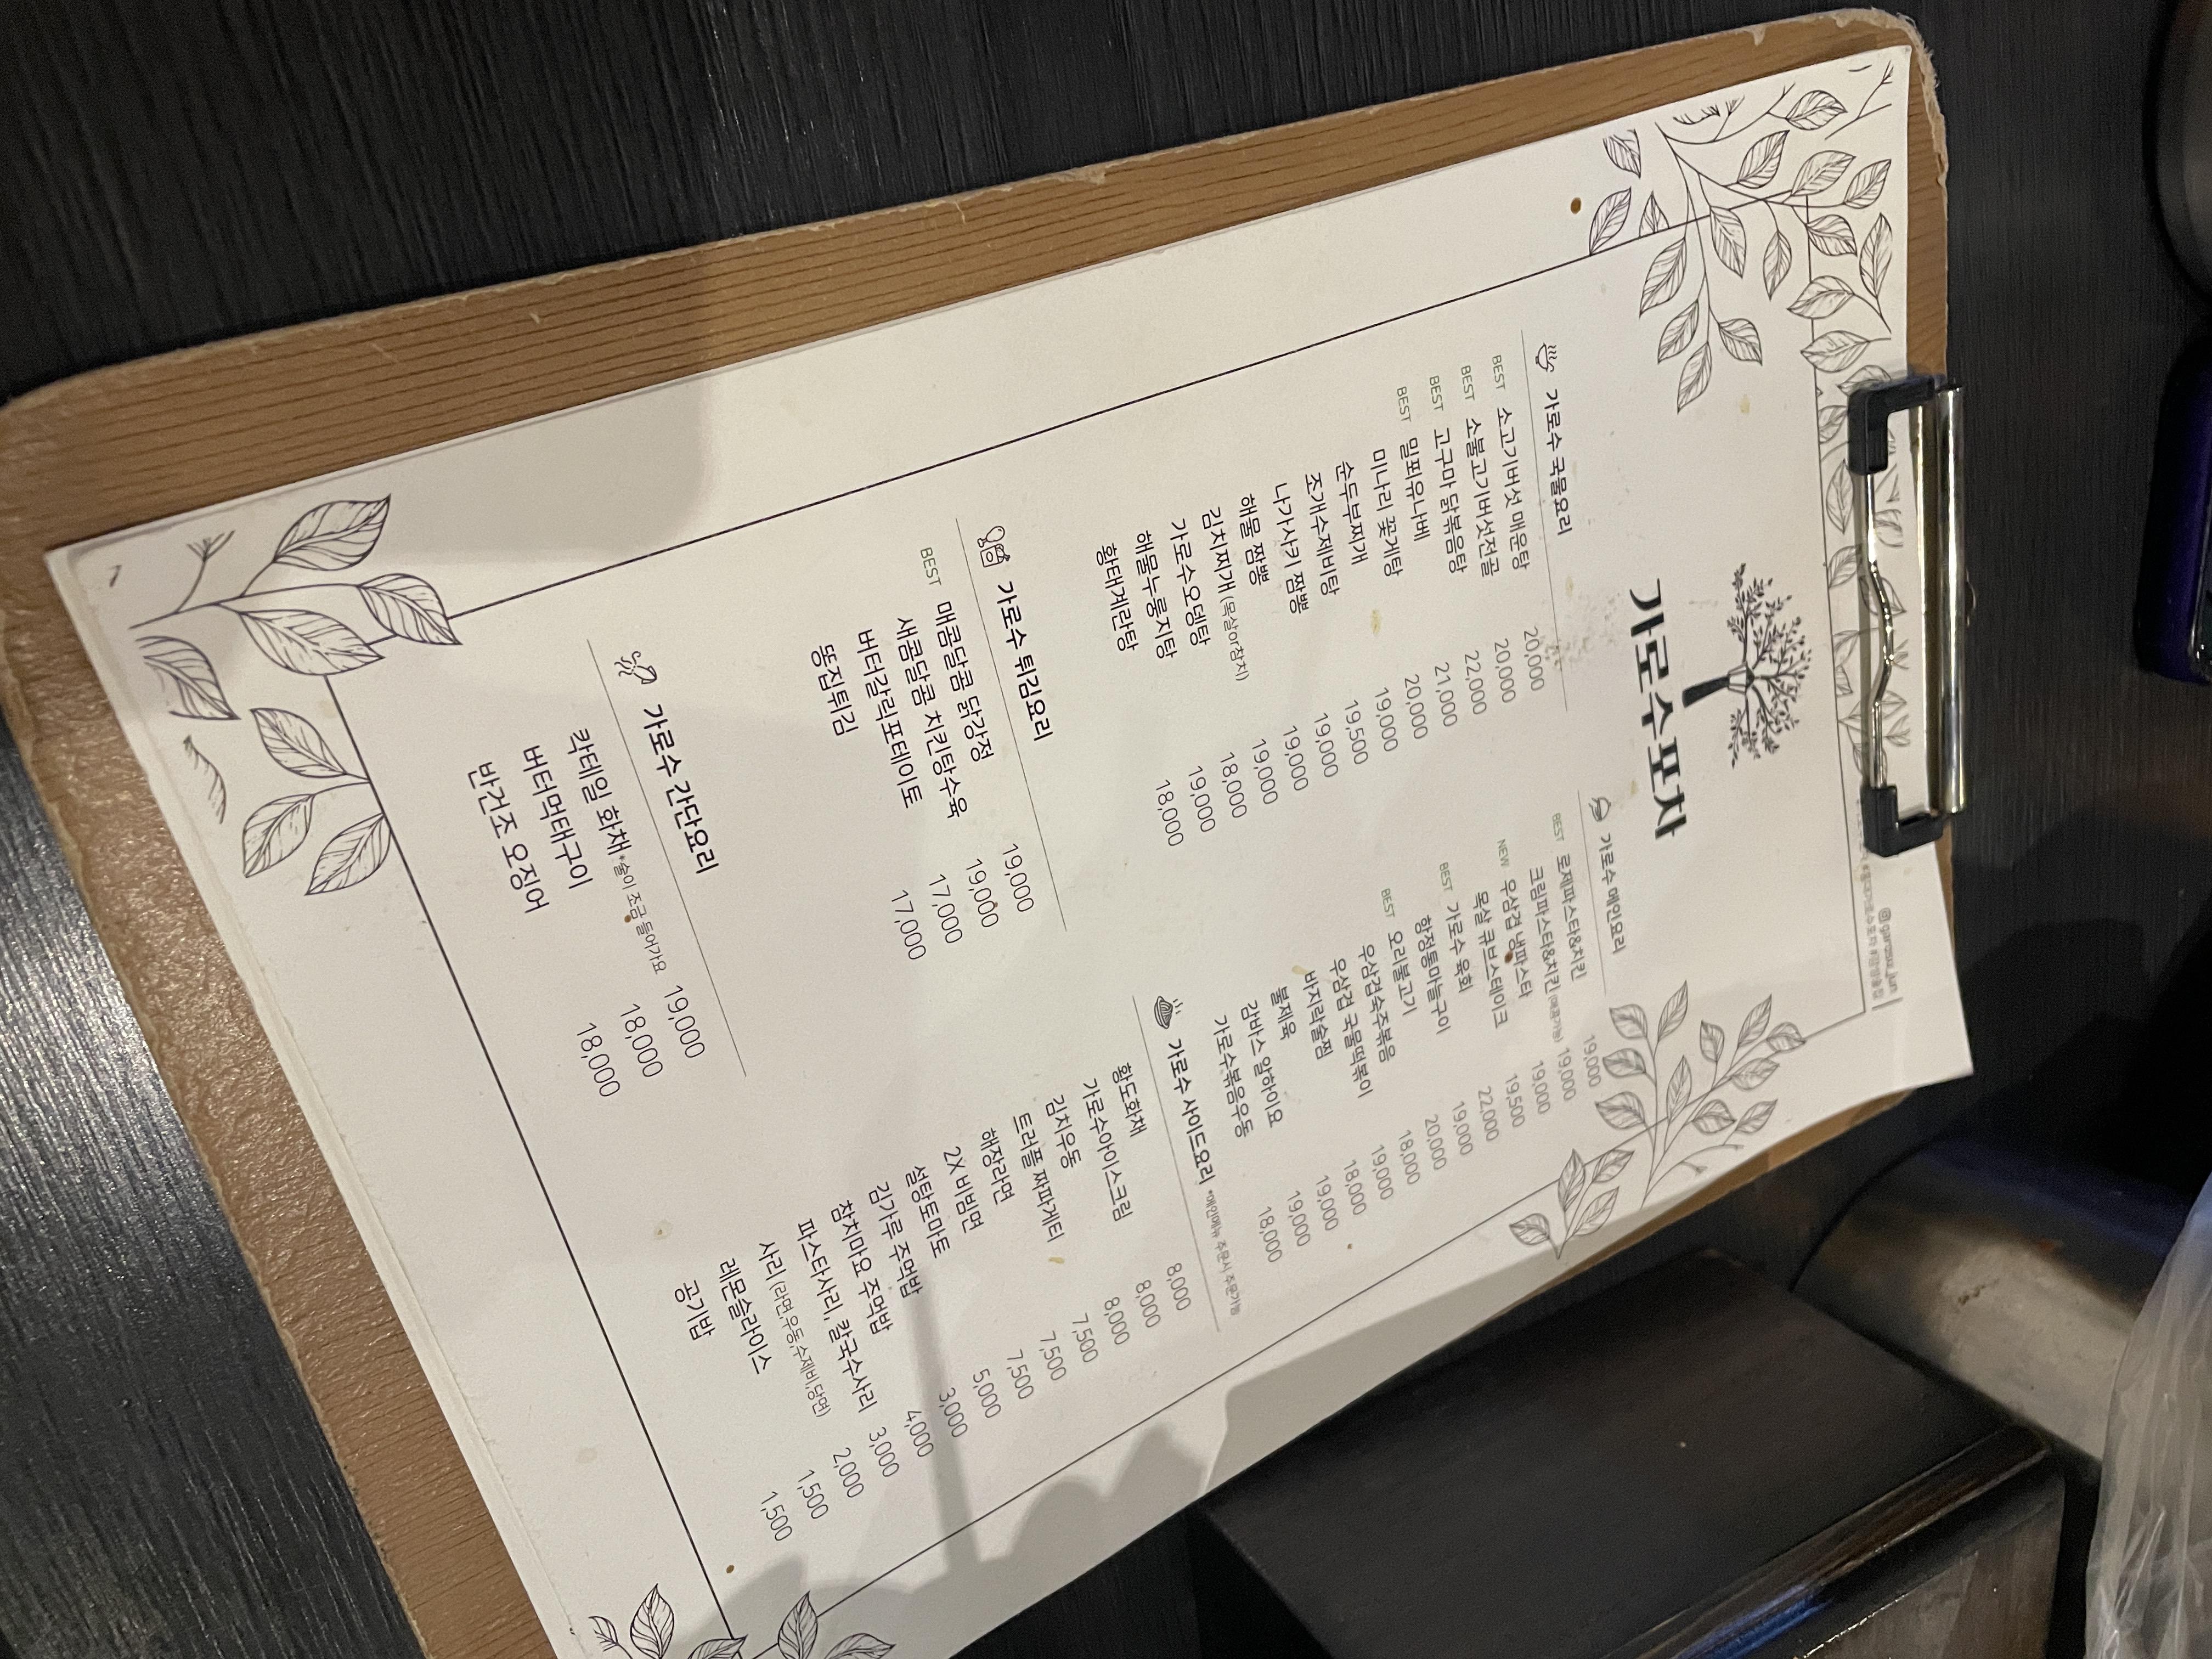 가로수포차
가로수 국물요리
BEST 소고기버섯 매운탕 20,000
BEST 소불고기버섯전골 20,000
BEST 고구마 닭볶음탕 22,000
BEST 밀푀유나베 21,000
미나리 꽃게탕 20,000
순두부찌개 19,000
조개수제비탕 19,500
나가사키 짬뽕 19,000
해물 짬뽕 19,000
김치찌개 (목살or참치) 19,000
가로수오뎅탕 18,000
해물누룽지탕 19,000
황태계란탕 18,000
가로수 튀김요리
BEST 매콤달콤 닭강정 19,000
새콤달콤 치킨탕수육 19,000
버터갈릭포테이토 17,000
똥집튀김 17,000
가로수 간단요리
칵테일 화채 *술이 조금 들어가요 19,000
버터먹태구이 18,000
반건조 오징어 18,000
가로수 메인요리
BEST 로제파스타&치킨 19,000
크림파스타&치킨 19,000
NEW 우삼겹 냉파스타 19,000
목살 큐브스테이크 19,500
BEST 가로수 육회 22,000
항정통마늘구이 19,000
BEST 오리불고기 20,000
우삼겹숙주볶음 18,000
우삼겹 국물떡볶이 19,000
바지락술찜 18,000
불제육 19,000
감바스 알하이요 19,000
가로수볶음우동 18,000
가로수 사이드요리 *메인메뉴 주문시 주문가능
황도화채 8,000
가로수아이스크림 8,000
김치우동 8,000
트러플 짜파게티 7,500
해장라면 7,500
2X 비빔면 7,500
설탕토마토 5,000
김가루 주먹밥 3,000
참치마요 주먹밥 4,000
파스타사리, 칼국수사리 3,000
사리 (라면,우동,수제비,당면) 2,000
레몬슬라이스 1,500
공기밥 1,500